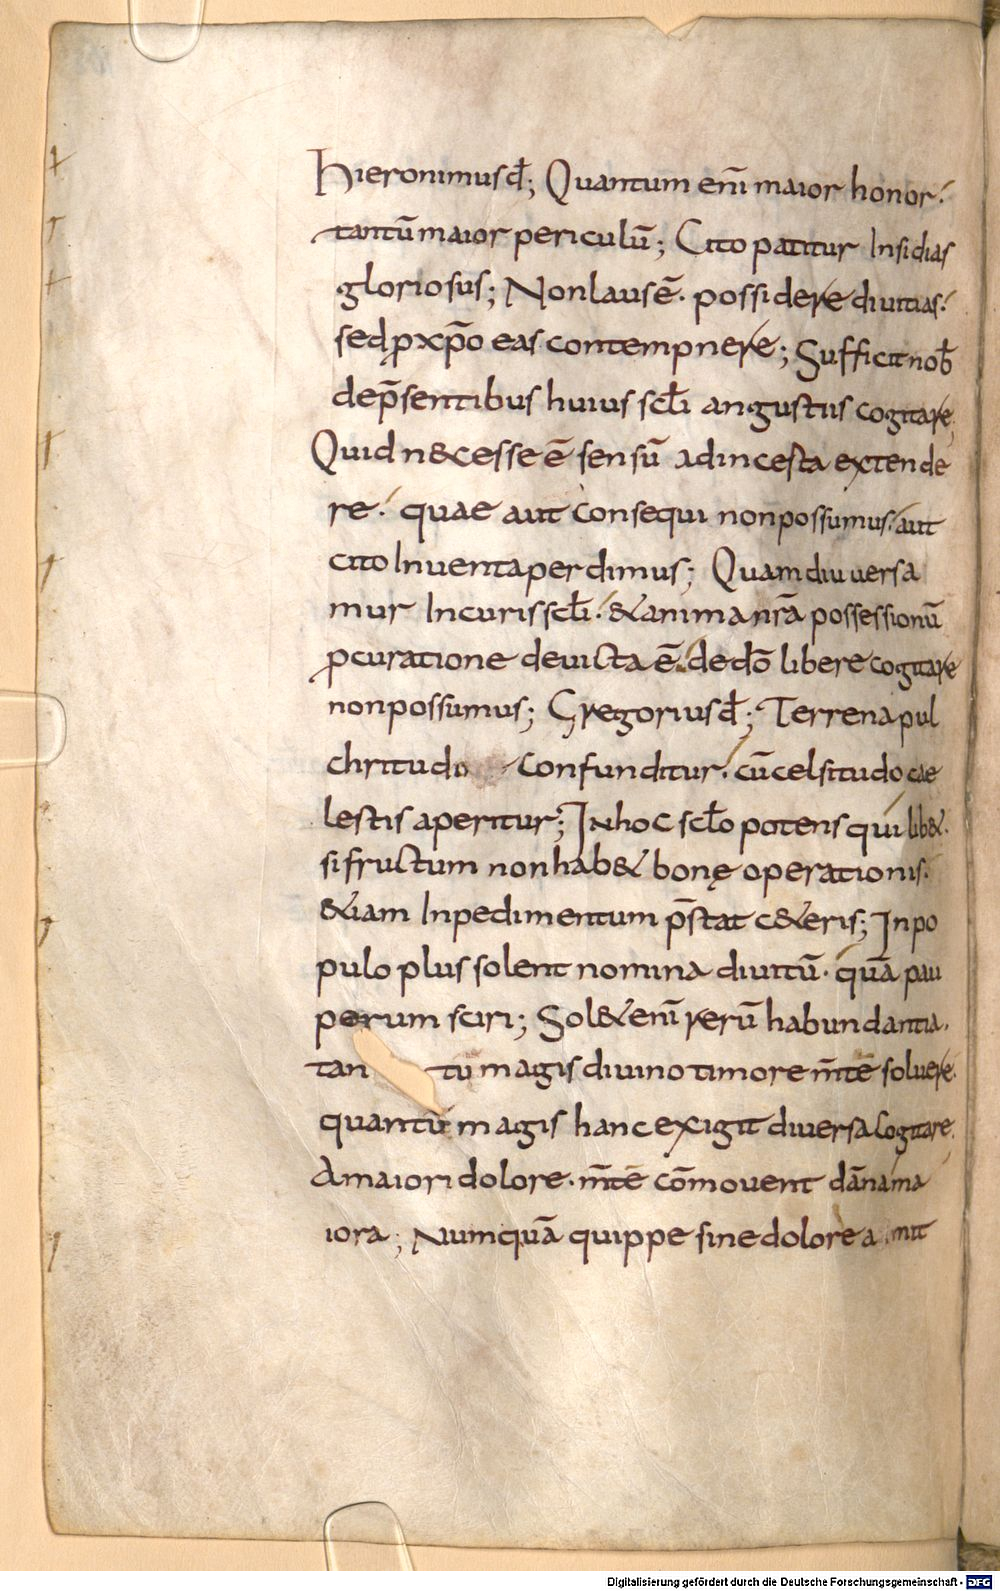 Hieronimus dꝉ; Quantum enī maior honor.
tantū maior periculū; Cito patitur Insidias
gloriosus; Non laus ē. possidere diuitias.
sed ꝓ xp̄o eas contempnere; Sufficit nob̄
de p̄sentibus huius scƚi angustiis cogitare;
Quid n&cesse ē sensū ad incesta extende
re. quae aut consequi non possumus. aut
cito Inuenta perdimus; Quamdiu uersa
mur In curis scƚi. & anima nr̄a possessionū
ꝓcuratione deuicta ē. de dō libere cogitare
non possumus; Gregorius dꝉ; Terrena pul
chritudo confunditur. cū celsitudo cae
lestis aperitur; In hoc scƚo potens qui lib&.
si fructum non hab& bonę operationis.
&iam Inpedimentum p̄stat c&eris; In po
pulo plus solent nomina diuitū. quā pau
perum sciri; Sol& enī rerū habundantia.
tantu magis diuino timore m̄tē soluere.
quantū magis hanc exigit diuersa cogitare.
A maiori dolore. m̄tē cōmouent dāna ma
iora; Numquā quippe sine dolore a mit